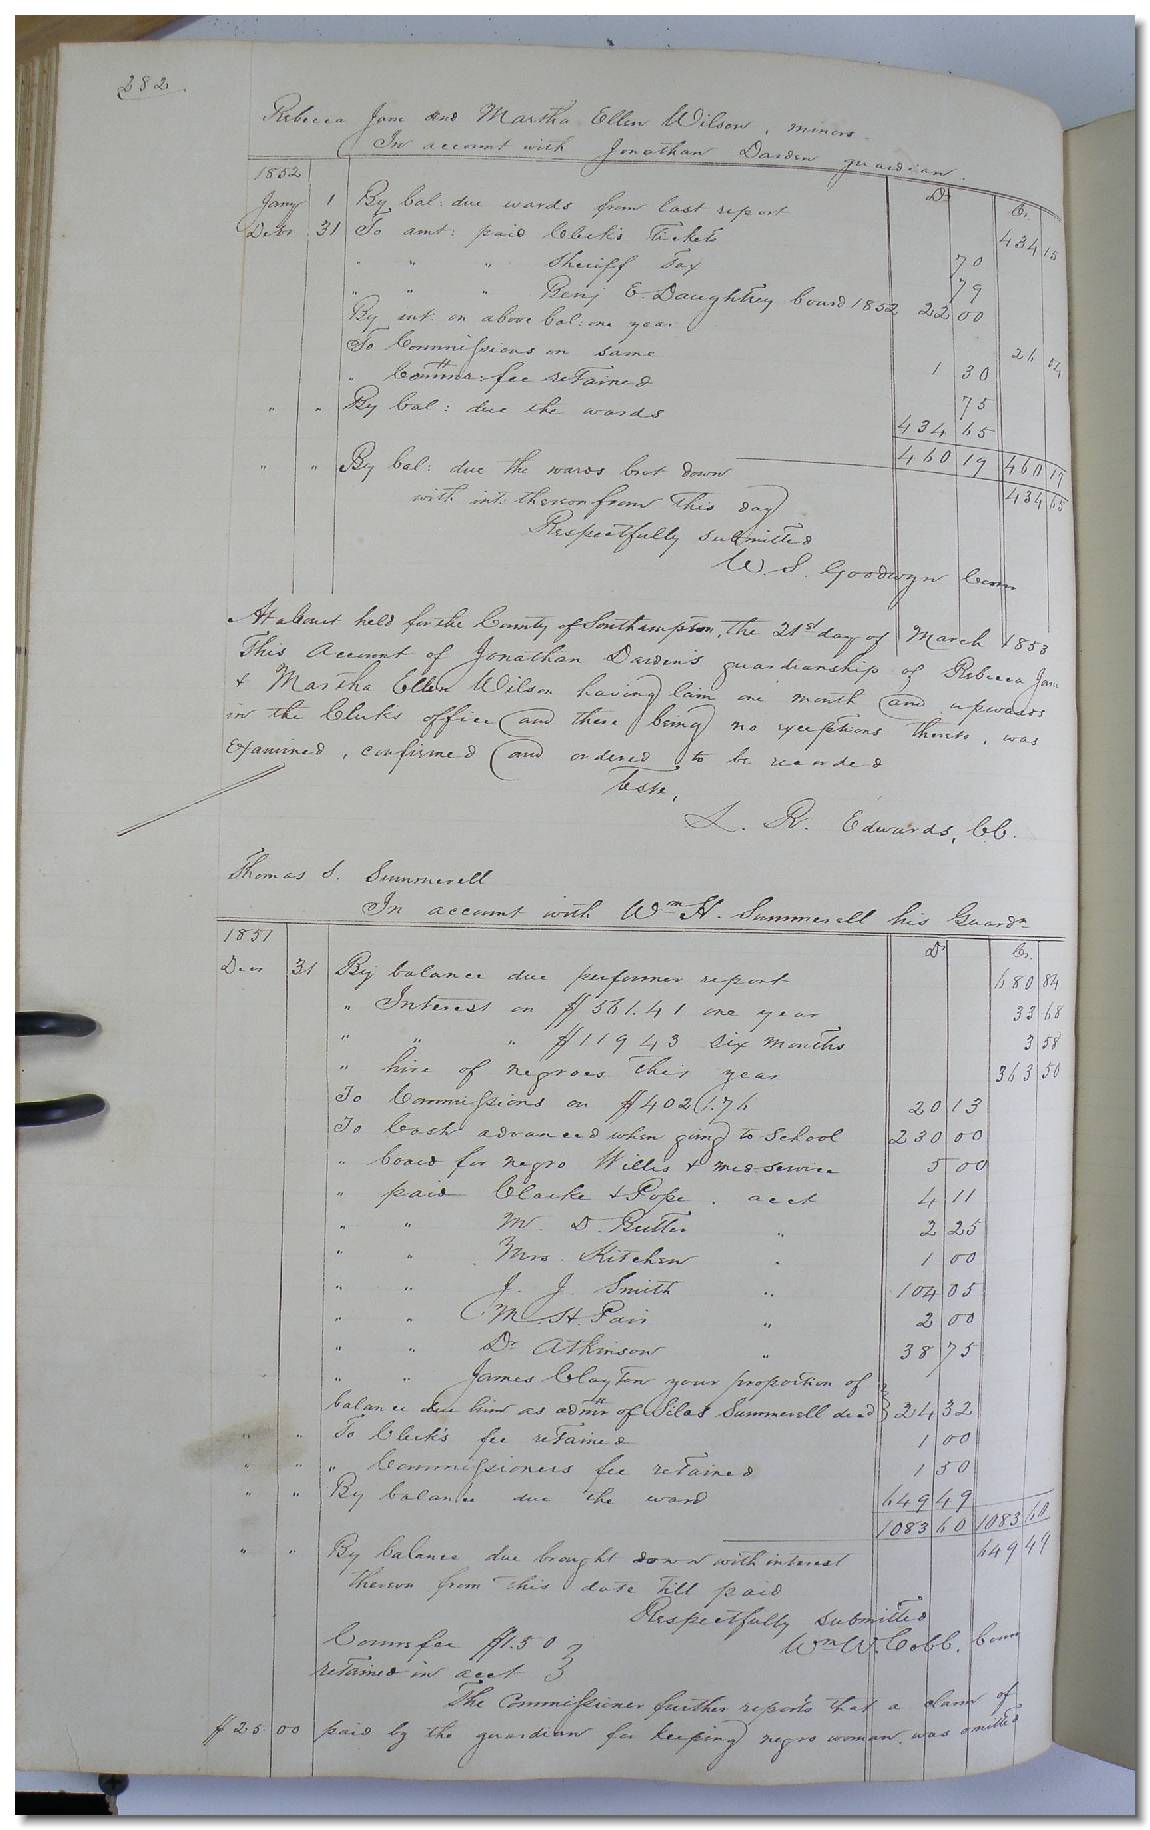 282.
Rebecca Jane and Martha Ellen Wilson, minors
In account with Jonathan Darden guardian.
1852 Dr Cr.
Jany 1 By bal: due wards from last report 434 15
Decr 31 To amt: paid Clerk's Tickets 70
" " " Sheriff Tax 79
" " " Benj E. Daughtrey board 1852 22 00
By int: on above bal: one year 26 04
To Commissions on same 1 30
" Commrs. fee retained 75
" " By bal: due the wards 434 65
460 19 460 19
" " By bal: due the wards brot down 434 65
with int. thereon from this day
Respectfully submitted
W. S. Goodwyn Com
At a Court held for the County of Southampton, the 21st day of March 1853
This Account of Jonathan Darden's guardianship of Rebecca Jane
& Martha Ellen Wilson having lain one month and upwards
in the Clerks office and there being no exceptions thereto, was
Examined, confirmed and ordered to be recorded
Teste,
L. R. Edwards, CC.
Thomas S. Summerell
In account with Wm H. Summerell his Guardn
1851 Dr Cr.
Decr 31 By balance due per former report 680 84
" Interest on $561.41 one year 33 68
" " " $119 43 six months 3 58
" hire of negroes this year 363 50
To Commissions on $402.76 20 13
To Cash advanced when going to School 230 00
" board for negro Willis & med service 5 00
" paid Clarke & Pope. acct 4 11
" " M. D. Butler " 2 25
" " Mrs. Kitchen " 1 00
" " J. J. Smith " 104 05
" " M. H. Pair " 2 00
" " Dr Atkinson " 38 75
" " James Clayton your proportion of
balance due him as admr of Silas Summerell decd } 24 32
" " To Clerk's fee retained 1 00
" " " Commissioners fee retained 1 50
" " By balance due the ward 649 49
1083 60 1083 60
" " By balance due brought down with interest 649 49
thereon from this date till paid
Respectfully submitted
Wm W. Cobb. Com
Comrs fee $1.50 }
retained in acct }
The Commissioner further reports that a claim of
$25 00 paid by the guardian for keeping negro woman, was omitted